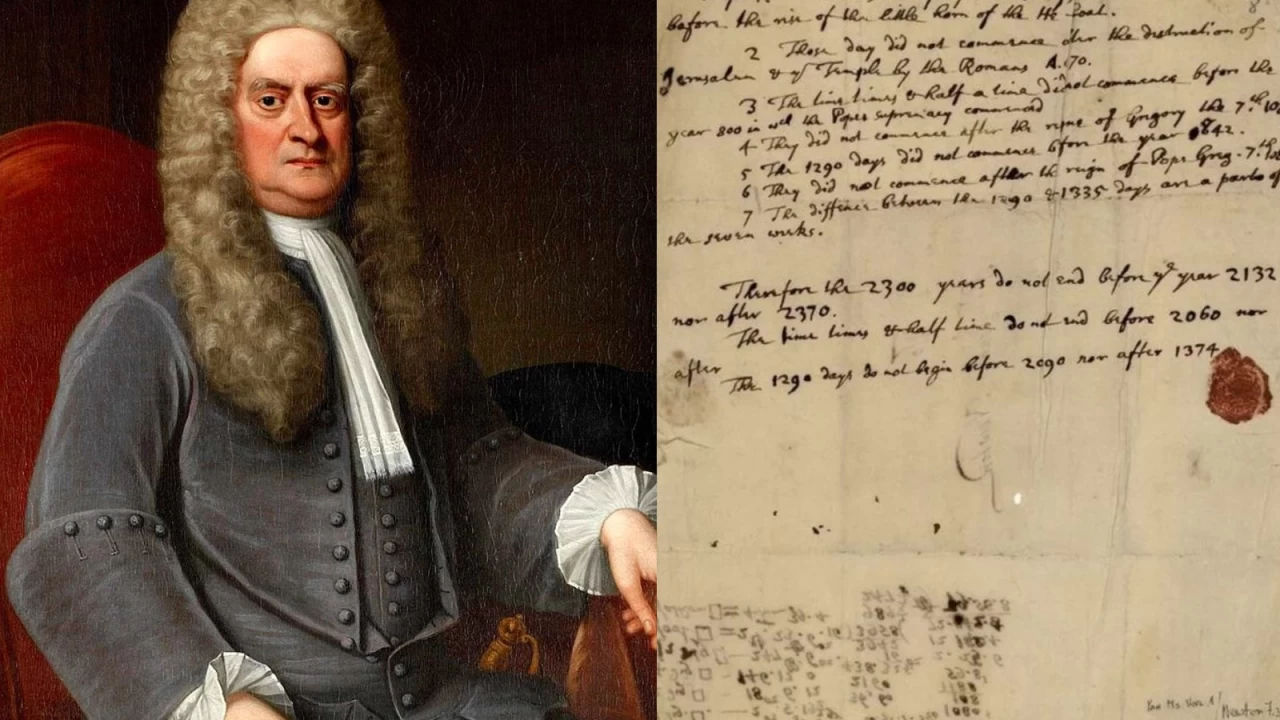 before the rise of the little horn of the He Goat.
2 Those day did not commence after the destruction of
Jerusalem & yᵉ Temple by the Romans A. 70.
3 The time times & half a time did not commence before the
year 800 in wᶜʰ the Popes supremacy commenced
4 They did not commence after the reigne of Gregory the 7ᵗʰ
5 The 1290 days did not commence before the year 842.
6 They did not commence after the reign of Pope Greg. 7ᵗʰ
7 The diffence between the 1290 & 1335 days are a parts of
the seven weeks.
Therefore the 2300 years do not end before yᵉ year 2132
nor after 2370.
The time times & half time do not end before 2060 nor
after
The 1290 days do not begin before 2090 nor after 1374
Newton